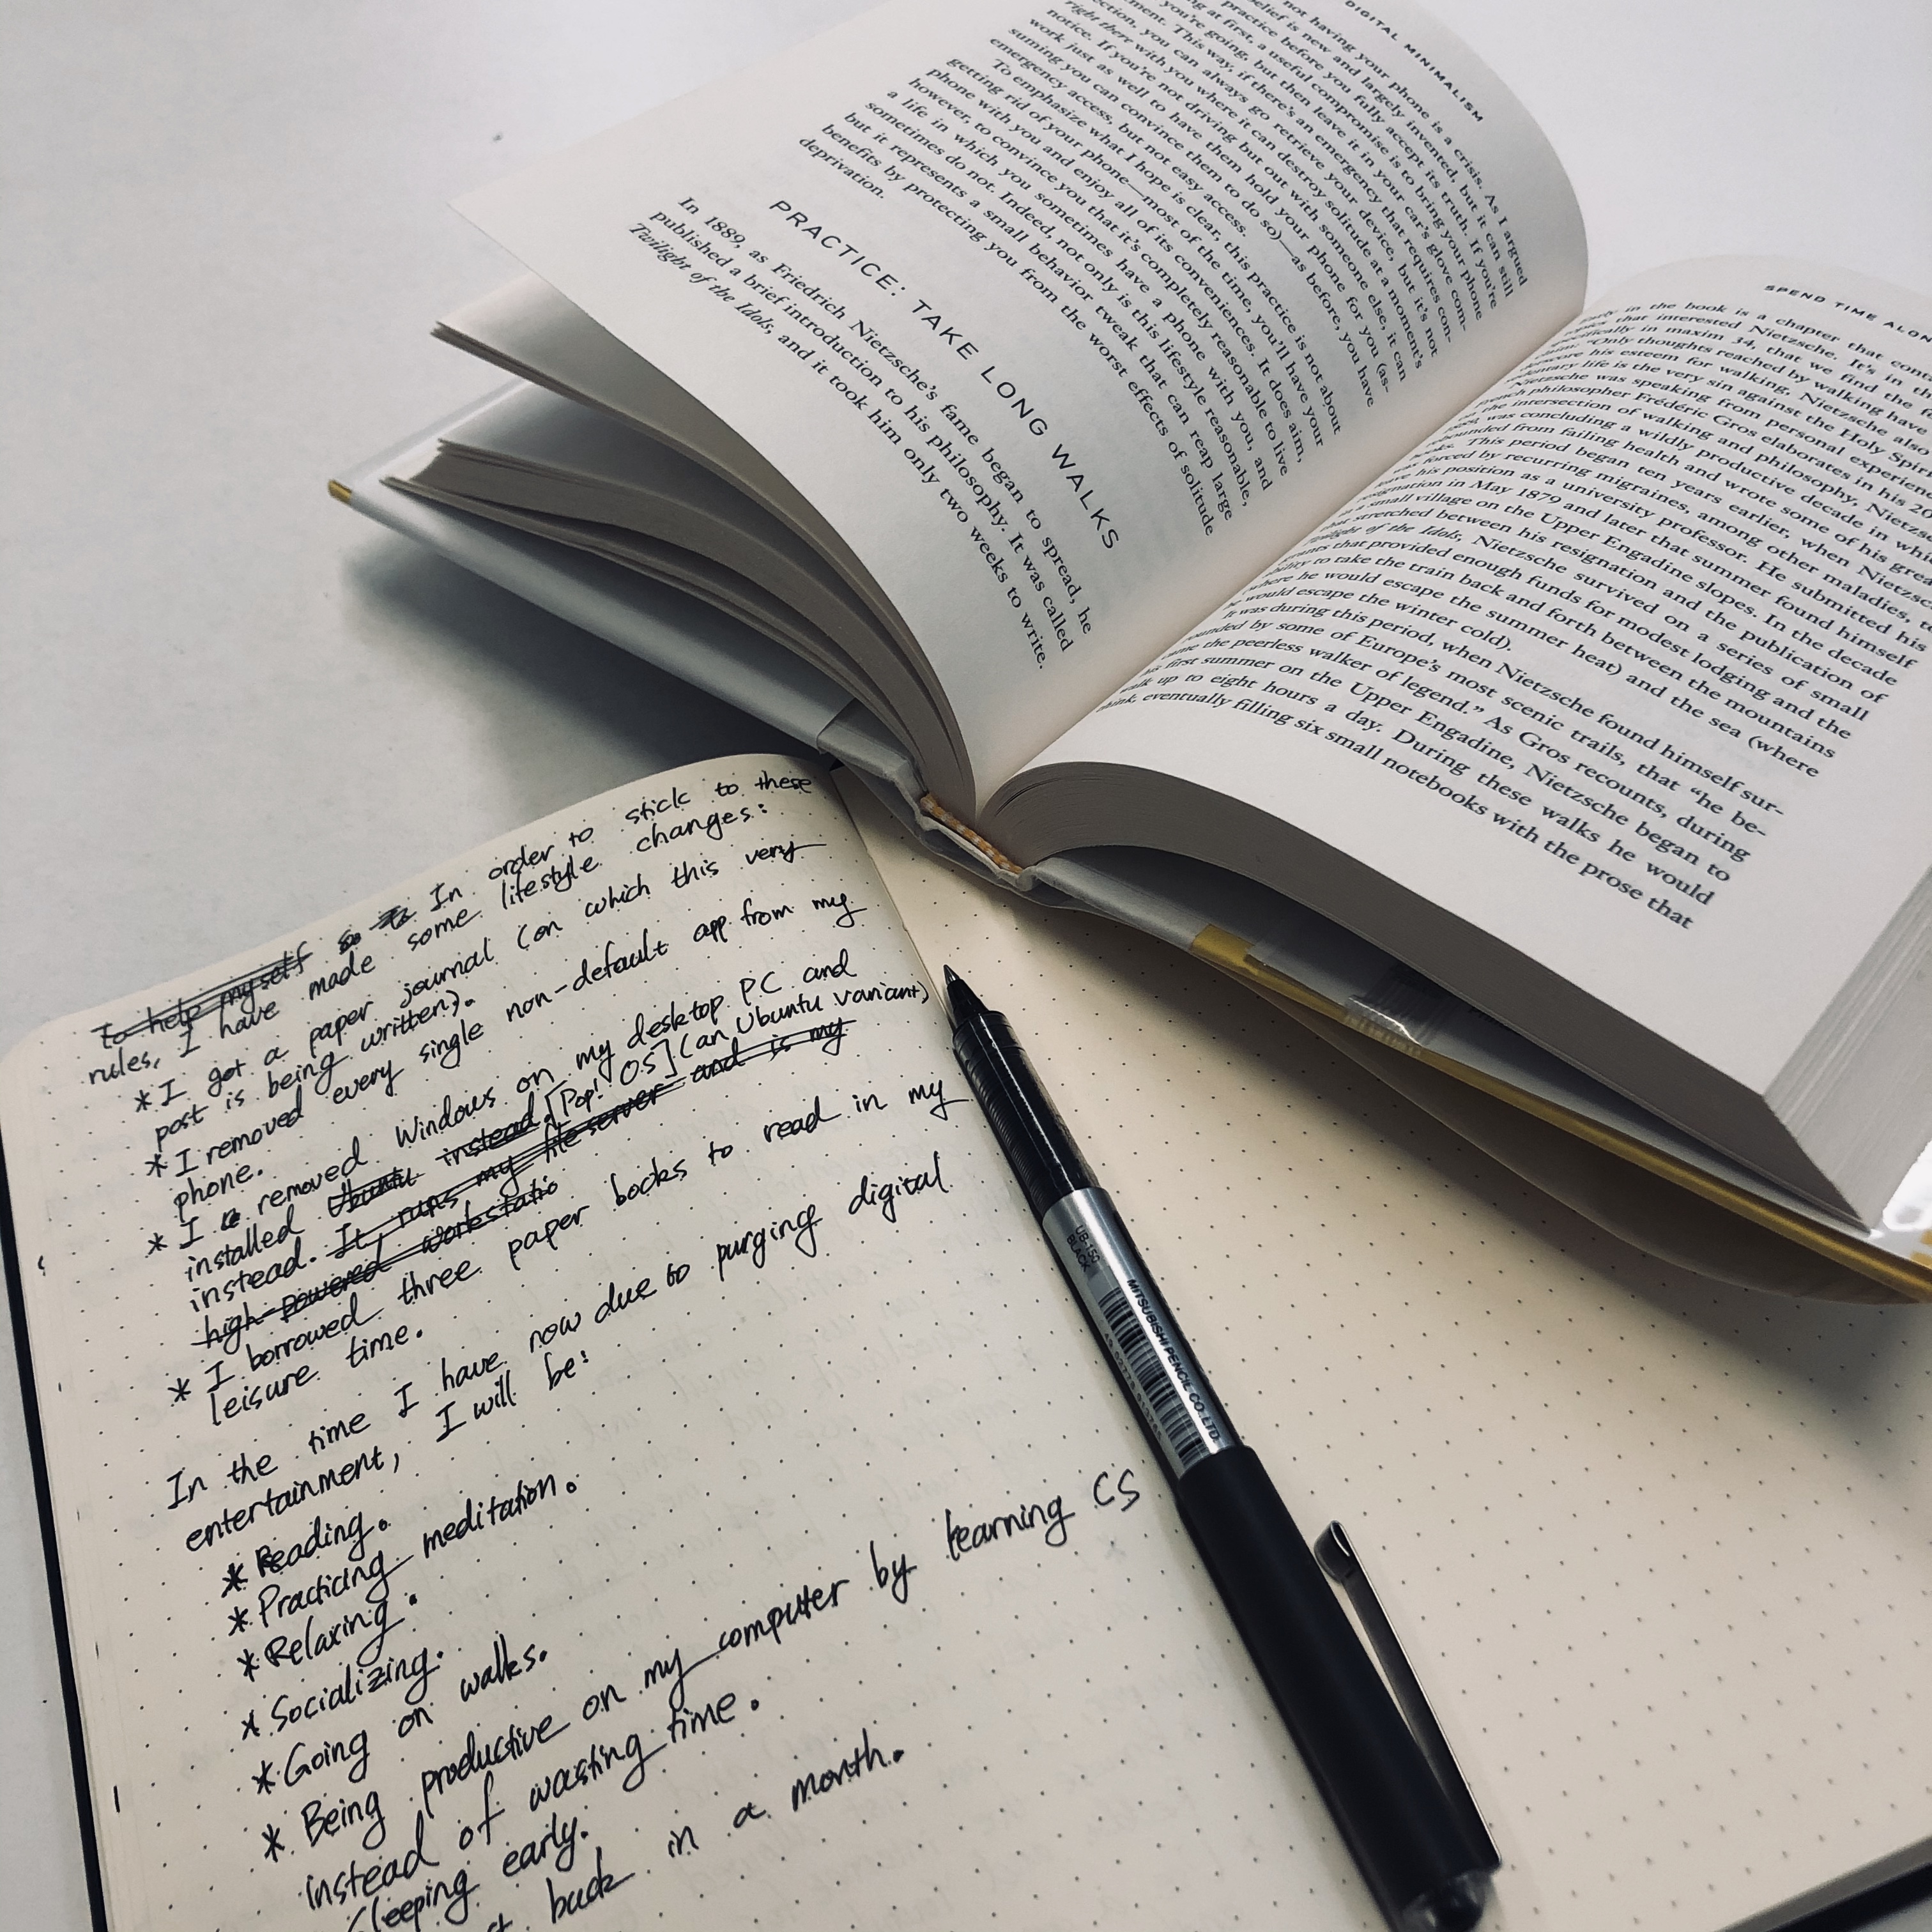 DIGITAL MINIMALISM
not having your phone is a crisis. As I argued
belief is new and largely invented, but it can still
practice before you fully accept its truth. If you're
going at first, a useful compromise is to bring your phone
you're going, but then leave it in your car's glove com-
This way, if there's an emergency that requires con-
nection, you can always go retrieve your device, but it's not
right there with you where it can destroy solitude at a moment's
notice. If you're not driving but out with someone else, it can
work just as well to have them hold your phone for you (as-
suming you can convince them to do so)—as before, you have
emergency access, but not easy access.
To emphasize what I hope is clear, this practice is not about
getting rid of your phone—most of the time, you'll have your
phone with you and enjoy all of its conveniences. It does aim,
however, to convince you that it's completely reasonable to live
a life in which you sometimes have a phone with you, and
sometimes do not. Indeed, not only is this lifestyle reasonable,
but it represents a small behavior tweak that can reap large
benefits by protecting you from the worst effects of solitude
deprivation.
PRACTICE: TAKE LONG WALKS
In 1889, as Friedrich Nietzsche's fame began to spread, he
published a brief introduction to his philosophy. It was called
Twilight of the Idols, and it took him only two weeks to write.
SPEND TIME ALON
Early in the book is a chapter that
that interested Nietzsche. It's in
in maxim 34, that we find the
"Only thoughts reached by walking have
his esteem for walking, Nietzsche also
life is the very sin against the Holy Spiri
Nietzsche was speaking from personal experien
French philosopher Frédéric Gros elaborates in his 20
the intersection of walking and philosophy, Nietzs
was concluding a wildly productive decade in whi
rebounded from failing health and wrote some of his grea
books. This period began ten years earlier, when Nietzsc
was forced by recurring migraines, among other maladies, to
leave his position as a university professor. He submitted his
resignation in May 1879 and later that summer found himself
in a small village on the Upper Engadine slopes. In the decade
that stretched between his resignation and the publication of
Twilight of the Idols, Nietzsche survived on a series of small
grants that provided enough funds for modest lodging and the
ability to take the train back and forth between the mountains
(where he would escape the summer heat) and the sea (where
he would escape the winter cold).
It was during this period, when Nietzsche found himself sur-
rounded by some of Europe's most scenic trails, that "he be-
came the peerless walker of legend." As Gros recounts, during
his first summer on the Upper Engadine, Nietzsche began to
walk up to eight hours a day. During these walks he would
think, eventually filling six small notebooks with the prose that
To help myself so In order to stick to these
rules, I have made some lifestyle changes:
* I got a paper journal (on which this very
post is being written).
* I removed every single non-default app from my
phone.
* I removed Windows on my desktop PC and
installed Ubuntu instead. [Pop! OS] (an Ubuntu variant)
instead. It runs my file server and is my
high-powered workstatio
* I borrowed three paper books to read in my
leisure time.
In the time I have now due to purging digital
entertainment, I will be:
* Reading.
* Practicing meditation.
* Relaxing.
* Socializing.
* Going on walks.
* Being productive on my computer by learning CS
instead of wasting time.
Sleeping early.
back in a month.
UB-150
BLACK
MITSUBISHI PENCIL CO., LTD.